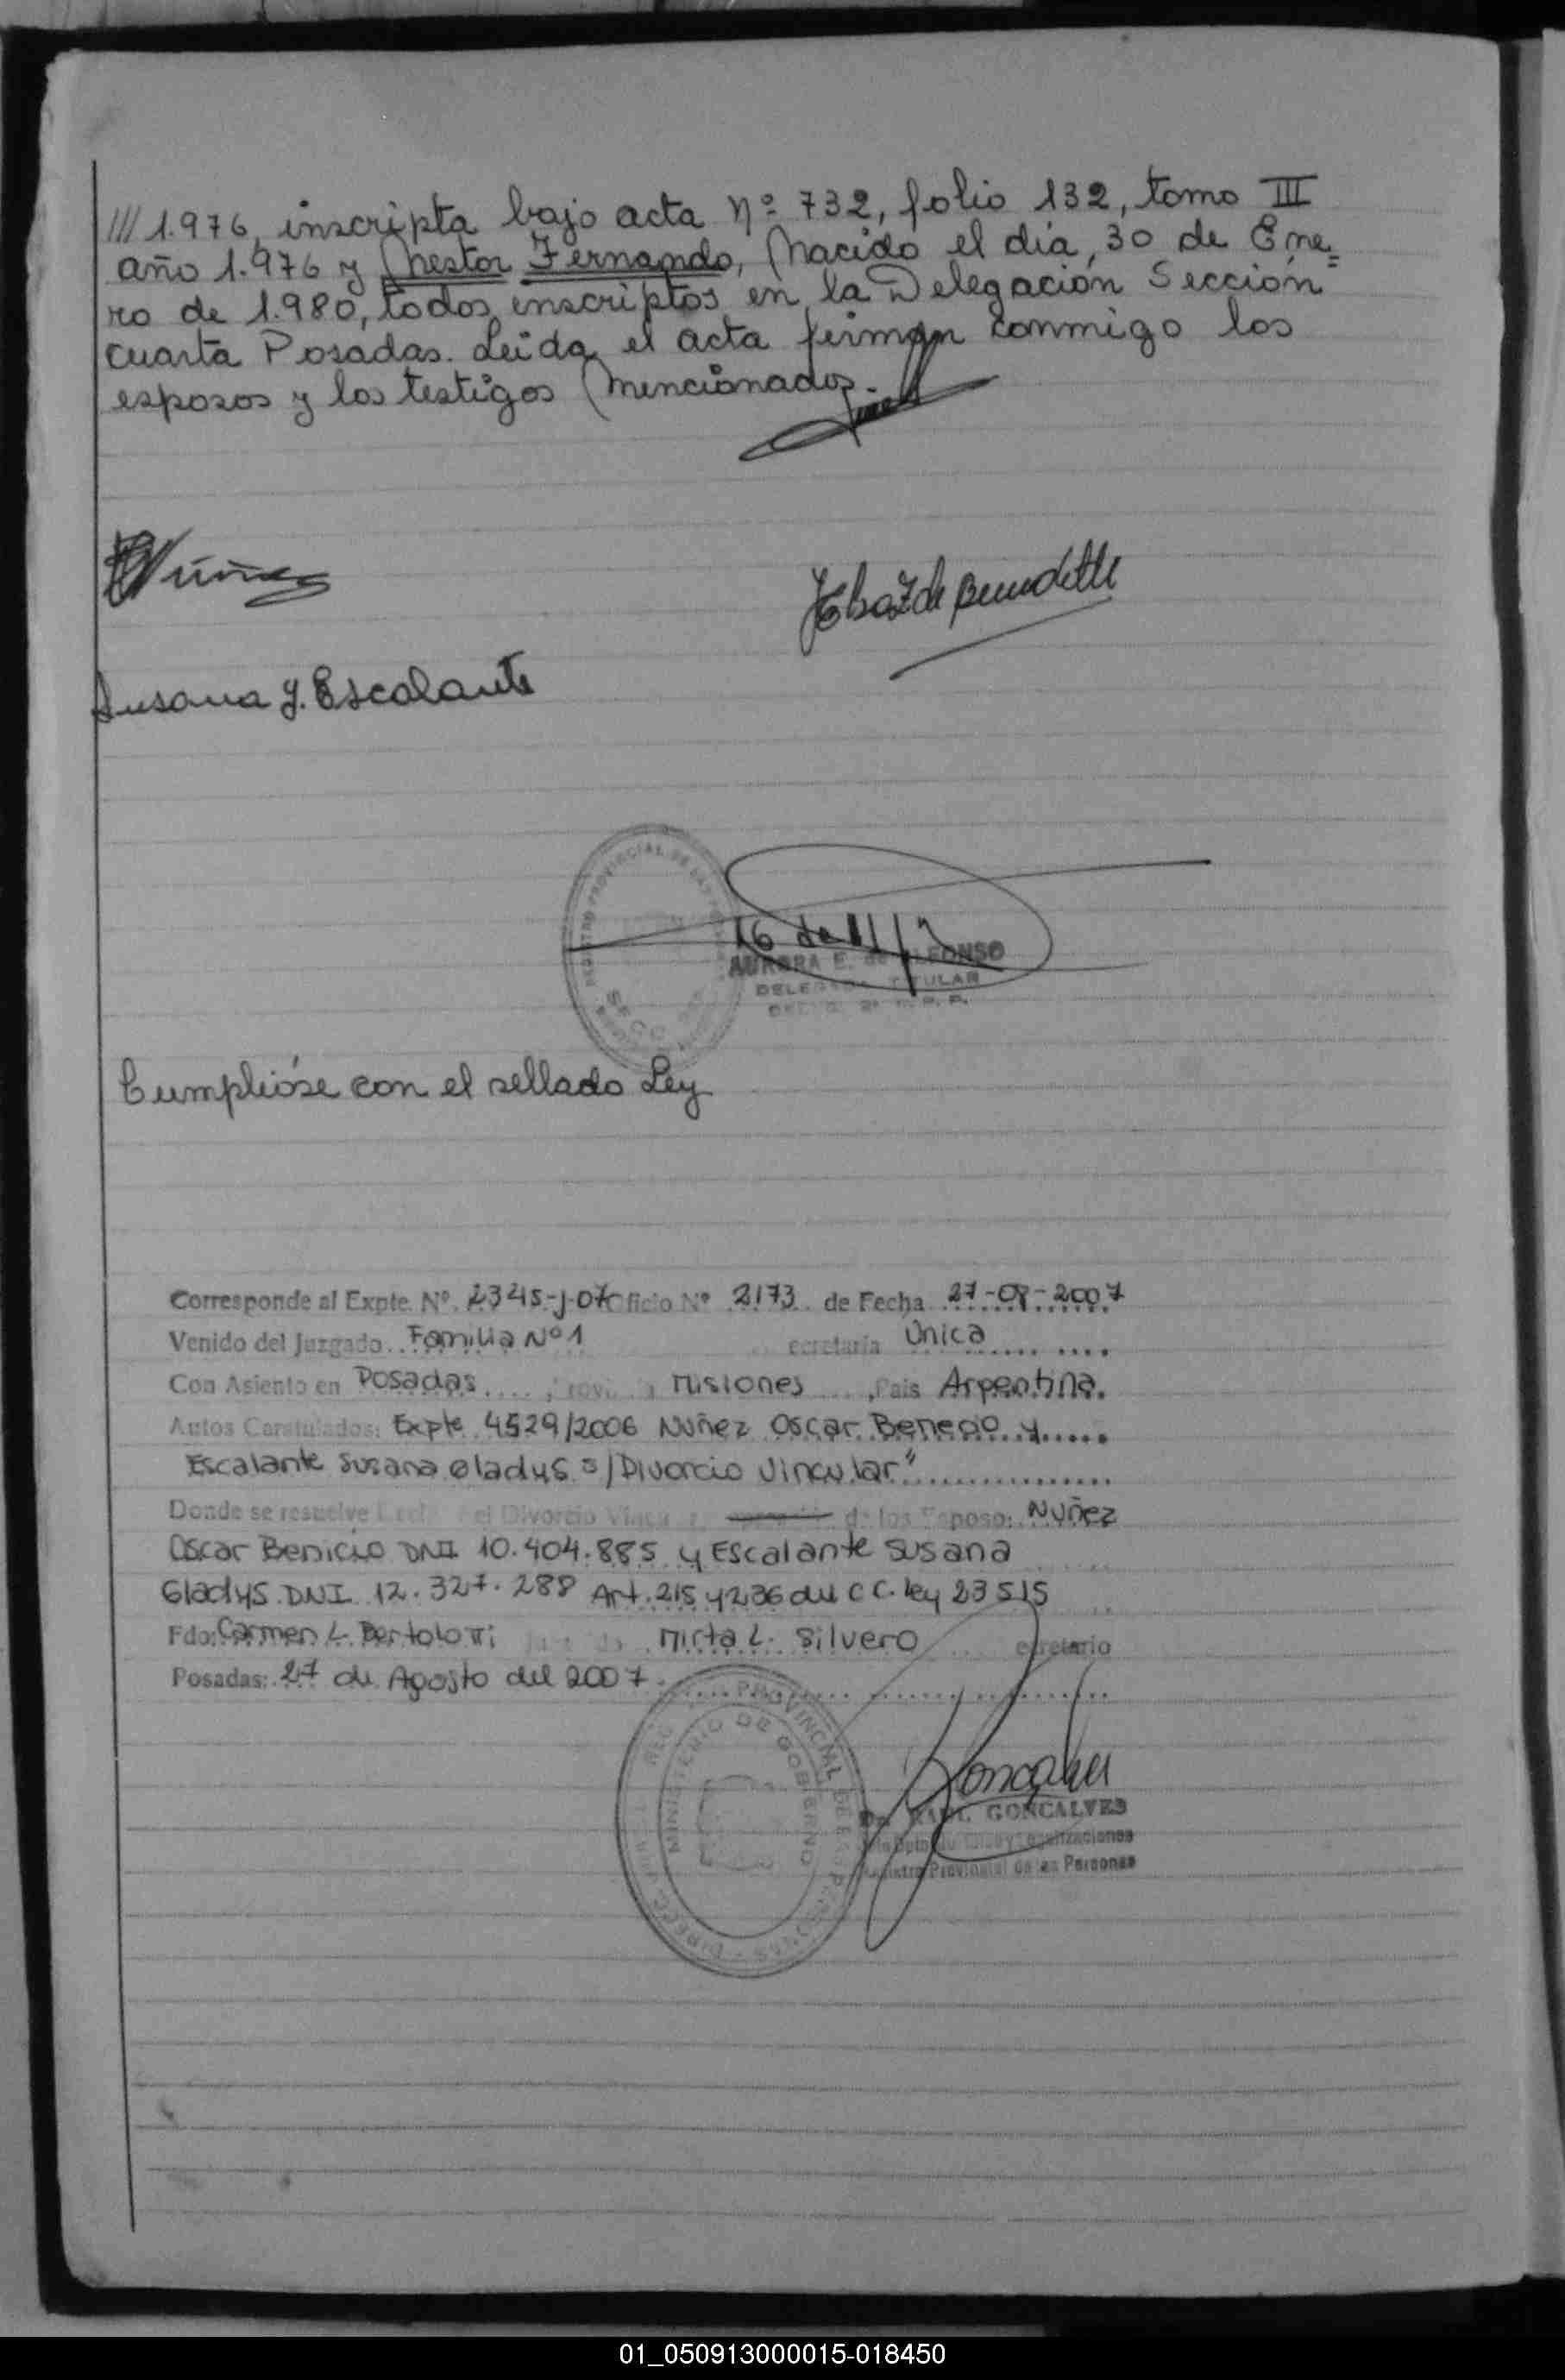 /// 1.976, inscripta bajo acta Nº 732, folio 132, tomo III
año 1.976 y Nestor Fernando, Nacido el día, 30 de Ene=
ro de 1.980, todos inscriptos en la Delegación Sección
cuarta Posadas. Leida el acta firman conmigo los
esposos y los testigos Mencionados.
Núñez
Susana G. Escalante
REGISTRO PROVINCIAL DE LAS
SECC.
AURORA E. de ALFONSO
DELEGADA TITULAR
Cumplióse con el sellado Ley
Corresponde al Expte. Nº. 2345-J-07 Oficio Nº 2173 de Fecha 27-08-2007
Venido del Juzgado Familia Nº 1 ecretaría Única
Con Asiento en Posadas Misiones, Pais Argentina.
Autos Caratulados: Expte 4529/2006 Nuñez Oscar Benecio y
Escalante Susana Gladys s/Divorcio Vincular"
Donde se resuelve el Divorcio de los Esposo: Nuñez
Oscar Benicio DNI 10.404.885 y Escalante Susana
Gladys DNI 12.327.288 Art. 215 y 236 del C C. ley 23515
Fdo: Carmen L. Bertolotti Mirta L. Silvero ecretario
Posadas: 27 de Agosto del 2007
PROVINCIAL DE LAS PERSONAS - DIRECC
MINISTERIO DE GOBIERNO
Goncalves
RAUL GONCALVES
y Legalizaciones
Registro Provincial de las Personas
01_050913000015-018450